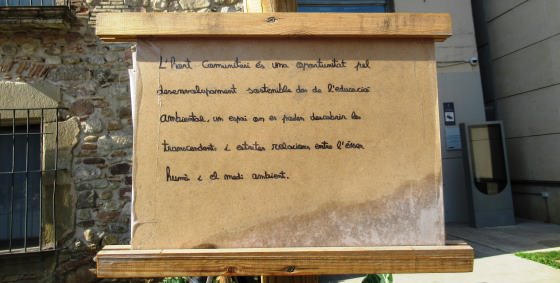 L'hort Comunitari és una oportunitat pel
desenvolupament sostenible des de l'educació
ambiental, un espai on es poden descobrir les
transcendents i estretes relacions entre l'ésser
humà i el medi ambient.